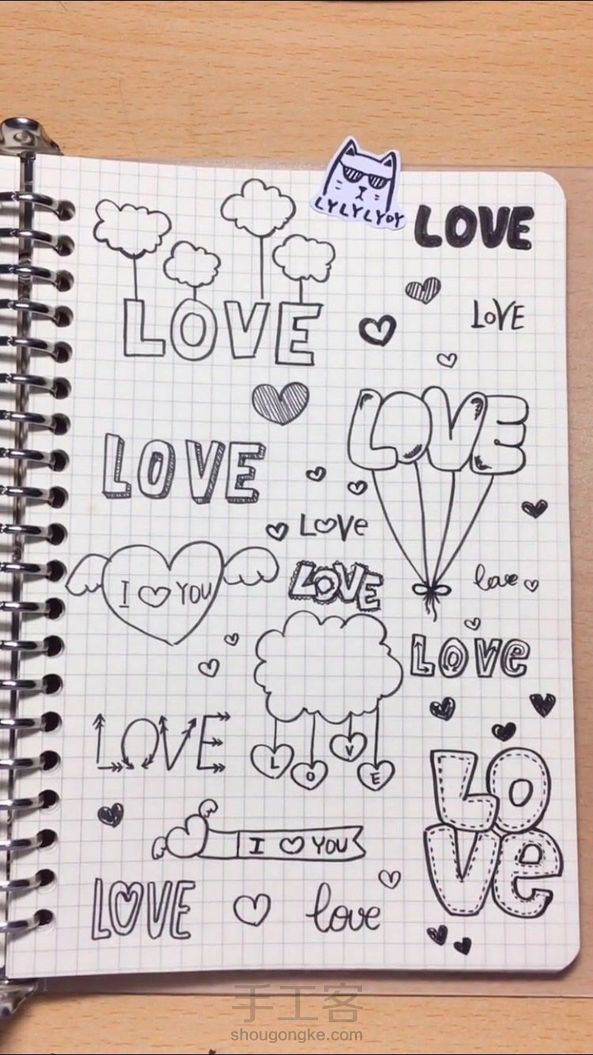 LYLYLYDY
LOVE
LOVE
LOVE
LOVE
LOVE
LOVE
I YOU
LOVE
love
LOVe
LOVE
LOVE
I YOU
LO
Ve
LOVE
love
手工客
shougongke.com